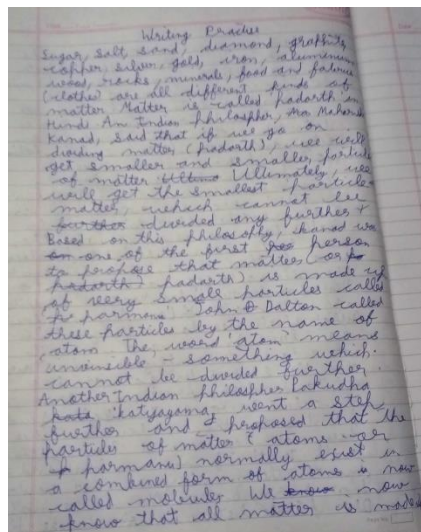 Writing Practice
Sugar, Salt, Sand, diamond, graphite,
copper, silver, gold, iron, aluminium
wood, rocks, minerals, food and fabrice
(clothes) are all different kinds of
matter. Matter is called padarth in
Hindi. An Indian philospher, Maharshi
Kanad, said that if we go on
dividing matter (padarth), we will
get smaller and smaller particle
of matter Ultimately, we
will get the smallest particle
matter, which cannot be
further divided any further
Based on this philosphy, kanad was
one of the first person
to propose that matter (or
padarth) is made up
of very small particles called
parmanu. John Dalton called
these particles by the name of
atom. The word 'atom' means
unvisible - something which
cannot be divided further.
Another Indian philospher Pakudha
katyayama, went a step
further and proposed that the
particles of matter (atoms or
parmanu) normally exist in
a combined form of atoms is now
called molecules We now
know that all matter is made